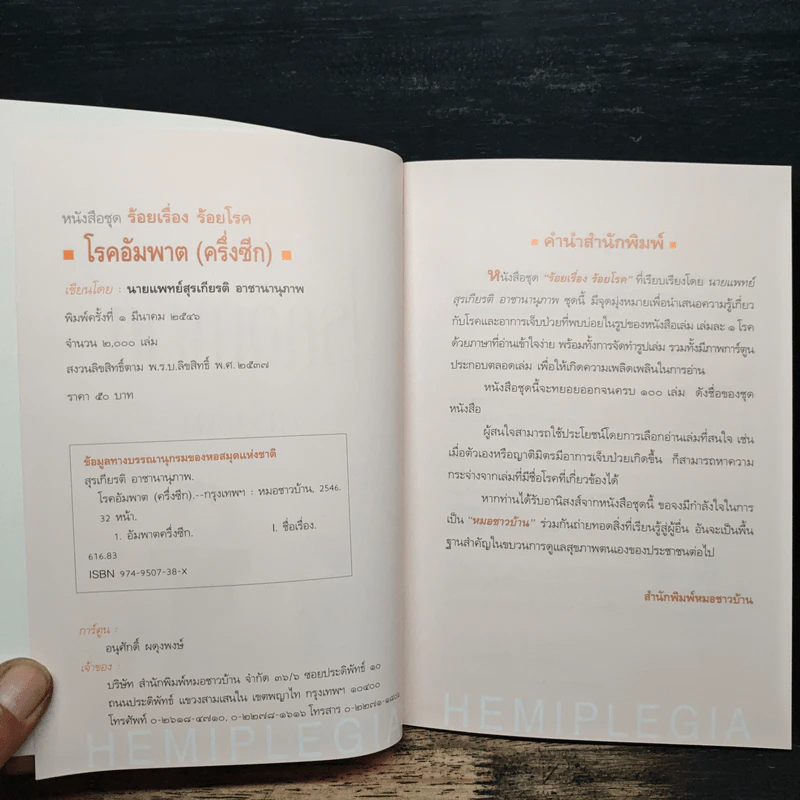 หนังสือชุด ร้อยเรื่อง ร้อยโรค
โรคอัมพาต (ครึ่งซีก)
เขียนโดย : นายแพทย์สุรเกียรติ อาชานานุภาพ
พิมพ์ครั้งที่ ๑ มีนาคม ๒๕๔๖
จำนวน ๒,๐๐๐ เล่ม
สงวนลิขสิทธิ์ตาม พ.ร.บ.ลิขสิทธิ์ พ.ศ.๒๕๓๗
ราคา ๕๐ บาท
ข้อมูลทางบรรณานุกรมของหอสมุดแห่งชาติ
สุรเกียรติ อาชานานุภาพ.
โรคอัมพาต (ครึ่งซีก).--กรุงเทพฯ : หมอชาวบ้าน, 2546.
32 หน้า.
1. อัมพาตครึ่งซีก. I. ชื่อเรื่อง.
616.83
ISBN 974-9507-38-X
การ์ตูน :
อนุศักดิ์ ผดุงพงษ์
เจ้าของ :
บริษัท สำนักพิมพ์หมอชาวบ้าน จำกัด ๓๖/๖ ซอยประดิพัทธ์ ๑๐
ถนนประดิพัทธ์ แขวงสามเสนใน เขตพญาไท กรุงเทพฯ ๑๐๔๐๐
โทรศัพท์ ๐-๒๖๑๘-๔๗๑๐, ๐-๒๒๗๘-๑๖๑๖ โทรสาร
HEMIPLEGIA
คำนำสำนักพิมพ์
หนังสือชุด "ร้อยเรื่อง ร้อยโรค" ที่เรียบเรียงโดย นายแพทย์
สุรเกียรติ อาชานานุภาพ ชุดนี้ มีจุดมุ่งหมายเพื่อนำเสนอความรู้เกี่ยว
กับโรคและอาการเจ็บป่วยที่พบบ่อยในรูปของหนังสือเล่ม เล่มละ ๑ โรค
ด้วยภาษาที่อ่านเข้าใจง่าย พร้อมทั้งการจัดทำรูปเล่ม รวมทั้งมีภาพการ์ตูน
ประกอบตลอดเล่ม เพื่อให้เกิดความเพลิดเพลินในการอ่าน
หนังสือชุดนี้จะทยอยออกจนครบ ๑๐๐ เล่ม ดังชื่อของชุด
หนังสือ
ผู้สนใจสามารถใช้ประโยชน์โดยการเลือกอ่านเล่มที่สนใจ เช่น
เมื่อตัวเองหรือญาติมิตรมีอาการเจ็บป่วยเกิดขึ้น ก็สามารถหาความ
กระจ่างจากเล่มที่มีชื่อโรคที่เกี่ยวข้องได้
หากท่านได้รับอานิสงส์จากหนังสือชุดนี้ ขอจงมีกำลังใจในการ
เป็น "หมอชาวบ้าน" ร่วมกันถ่ายทอดสิ่งที่เรียนรู้สู่ผู้อื่น อันจะเป็นพื้น
ฐานสำคัญในขบวนการดูแลสุขภาพตนเองของประชาชนต่อไป
สำนักพิมพ์หมอชาวบ้าน
HEMIPLEGIA